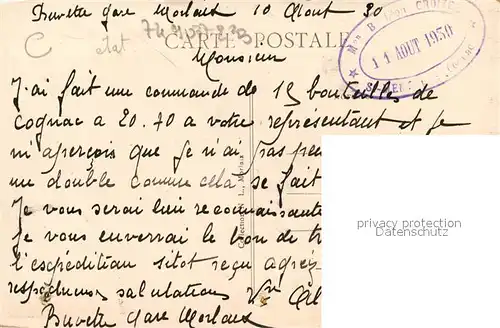 Buvette gare Morlaix 10 Aout 30
C
état
CARTE POSTALE
11 AOUT 1930
Monsieur
J'ai fait une commande de 15 bouteilles de
cognac a 20.70 a votre représentant et je
m'aperçois que je n'ai pas
un double comme cela se fait
Je vous serai bien reconnaissante
Je vous enverrai le bon de
l'expédition sitot reçu
respectueuses salutations
Buvette gare Morlaix
Collection N. L., Morlaix
privacy protection
Datenschutz